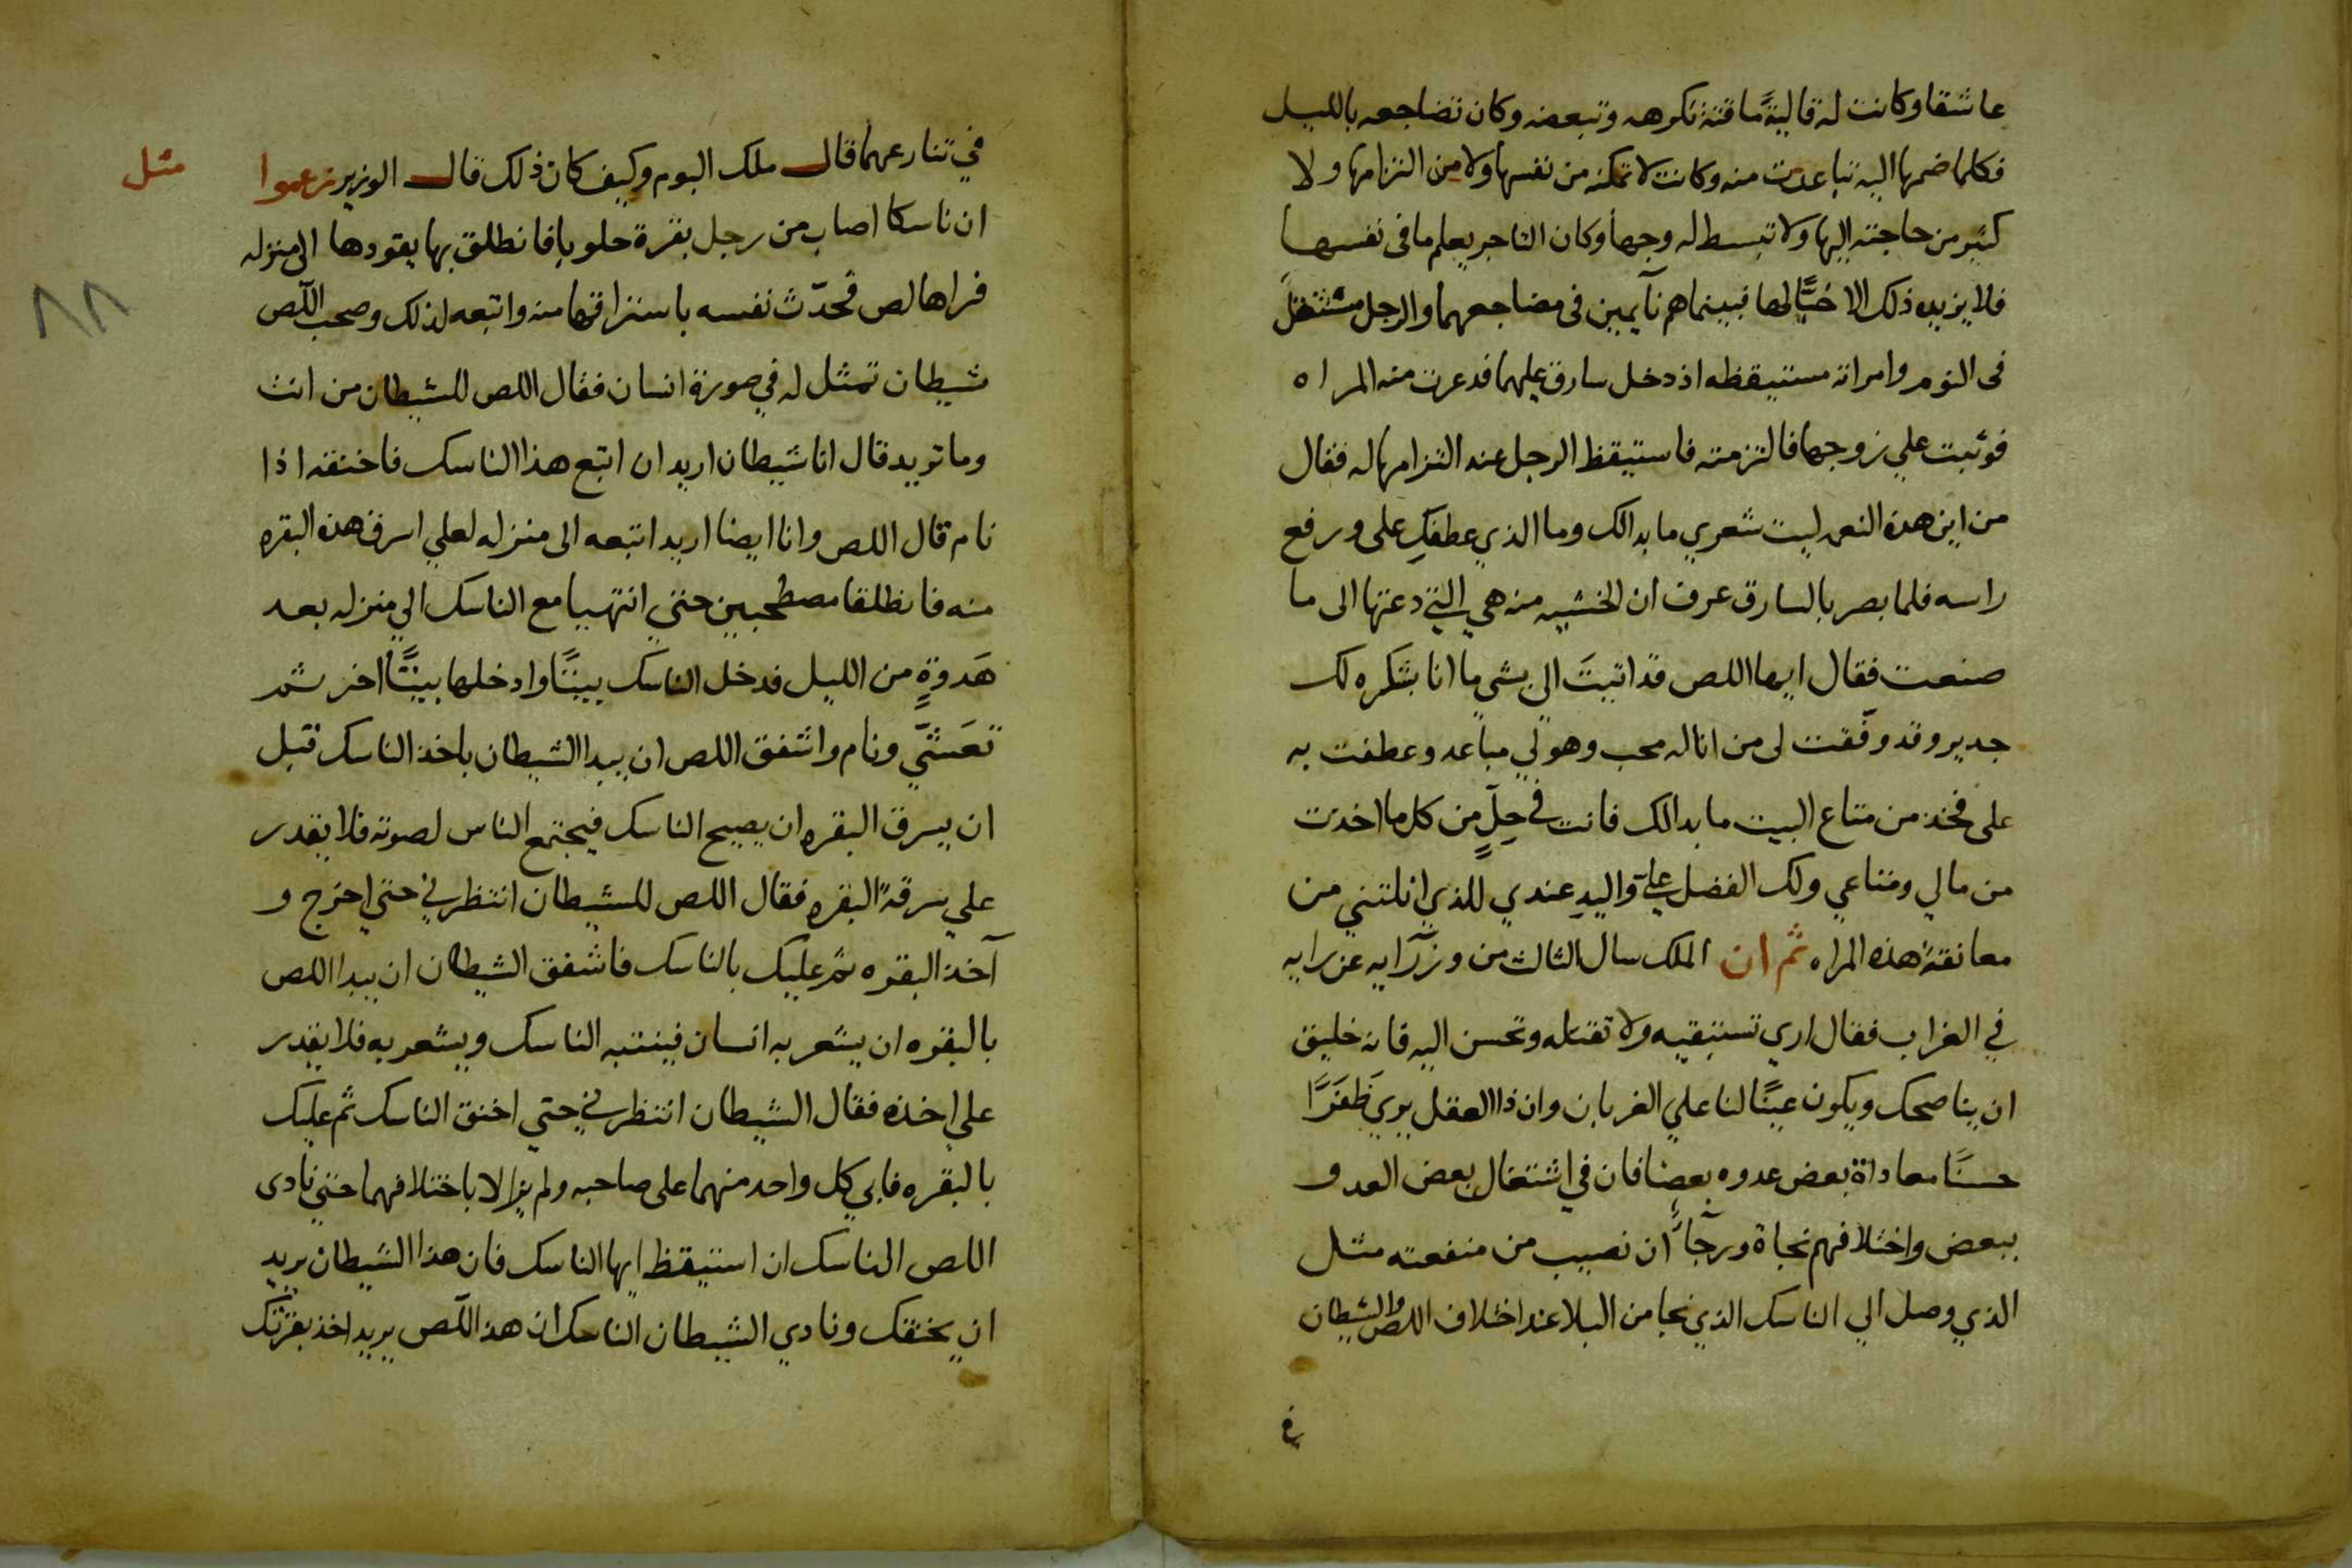 عاشقا وكانت له قالية ماقتة تكرهه وتبعضه وكان تضاجعه بالليل
فكلما ضمها اليه تباعدت منه وكانت لا تمكنه من نفسها ولا من التزامها ولا
كثير من حاجته اليها ولا تبسط له وجهاً وكان التاجر يعلم ما فى نفسها
فلا يزيده ذلك الا حبًّا لها فبينما هم نآيمين فى مضاجعهما والرجل مستثقلَ
فى النوم وامراته مستيقظه اذ دخل سارق عليهما فدعرت منه المراه
فوثبت علي زوجها فالتزمته فاستيقظ الرجل عند التزامها له فقال
من اين هده النعمه ليت شعري ما بدالك وما الذي عطفكِ على ورفع
راسه فلما بصر بالسارق عرف ان الخشيه منه هي التي دعتها الى ما
صنعت فقال ايها اللص قد اتيتَ الي بشي ما انا بشكره لك
جدير وقد وفّقت لى من انا له محب وهو لي مباعد وعطفت به
على فخذ من متاع البيت ما بدالك فانت في حِلٍّ من كل ما اخدت
من مالي ومتاعي ولك الفضل عليّ واليدِ عندي للذي انلتني من
معانقة هذه المراه ثم ان الملك سال الثالث من وزرآيه عن رايه
في الغراب فقال اري تستبقيه ولا تقتله وتحسن اليه فانه خليق
ان يناصحك ويكون عينًا لنا علي الغربان وان ذا العقل يري ظَفَرًا
حسنًا معاداة بعض عدوه بعضا فان في اشتغال بعض العدو
ببعض واختلافهم نجاة ورجآءً ان نصيب من منفعته مثل
الذي وصل الي الناسك الذي نجا من البلا عند اختلاف اللص والشيطان
في
في تنازعهما قال ملك البوم وكيف كان ذلك قال الوزير زعموا
مثل
ان ناسكا اصاب من رجل بقرة حلوبا فانطلق بها يقودها الى منزله
٨٨
فراها لص فحدّث نفسه باستراقها منه واتبعه لذلك وصحب اللّص
شيطان تمثل له في صورة انسان فقال اللص للشيطان من انت
وما تريد قال انا شيطان اريد ان اتبع هذا الناسك فاخنقه اذا
نام قال اللص وانا ايضا اريد اتبعه الى منزله لعلي اسرق هذه البقره
منه فانطلقا مصطحبين حتي انتهيا مع الناسك الي منزله بعد
هَدوةٍ من الليل فدخل الناسك بيتًا وادخلها بيتًا اخر ثم
تعَشّي ونام واشفق اللص ان يبدا الشيطان باخذ الناسك قبل
ان يسرق البقره ان يصيح الناسك فيجتمع الناس لصوته فلا يقدر
علي سرقة البقره فقال اللص للشيطان انتظرني حتي اخرج و
آخذ البقره ثم عليك بالناسك فاشفق الشيطان ان يبدا اللص
بالبقره ان يشعر به انسان فينتبه الناسك ويشعر به فلا يقدر
علي اخذه فقال الشيطان انتظرني حتي اخنق الناسك ثم عليك
بالبقره فابي كل واحد منهما على صاحبه ولم يزالا باختلافهما حتي نادى
اللص الناسك ان استيقظ ايها الناسك فان هذا الشيطان يريد
ان يخنقك ونادي الشيطان الناسك ان هذا اللّص يريد اخذ بقرتك